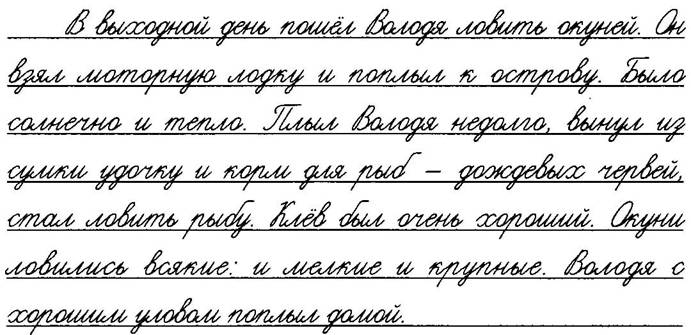 В выходной день пошёл Володя ловить окуней. Он
взял моторную лодку и поплыл к острову. Было
солнечно и тепло. Плыл Володя недолго, вынул из
сумки удочку и корм для рыб – дождевых червей,
стал ловить рыбу. Клёв был очень хороший. Окуни
ловились всякие: и мелкие и крупные. Володя с
хорошим уловом поплыл домой.